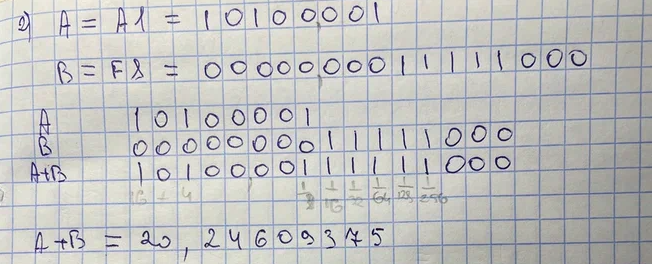 2) A = A1 = 10100001
B = F8 = 0000000011111000
A 10100001
B 0000000011111000
A+B 1010000111111000
16 + 4 1/8 1/16 1/32 1/64 1/128 1/256
A+B = 20,24609375